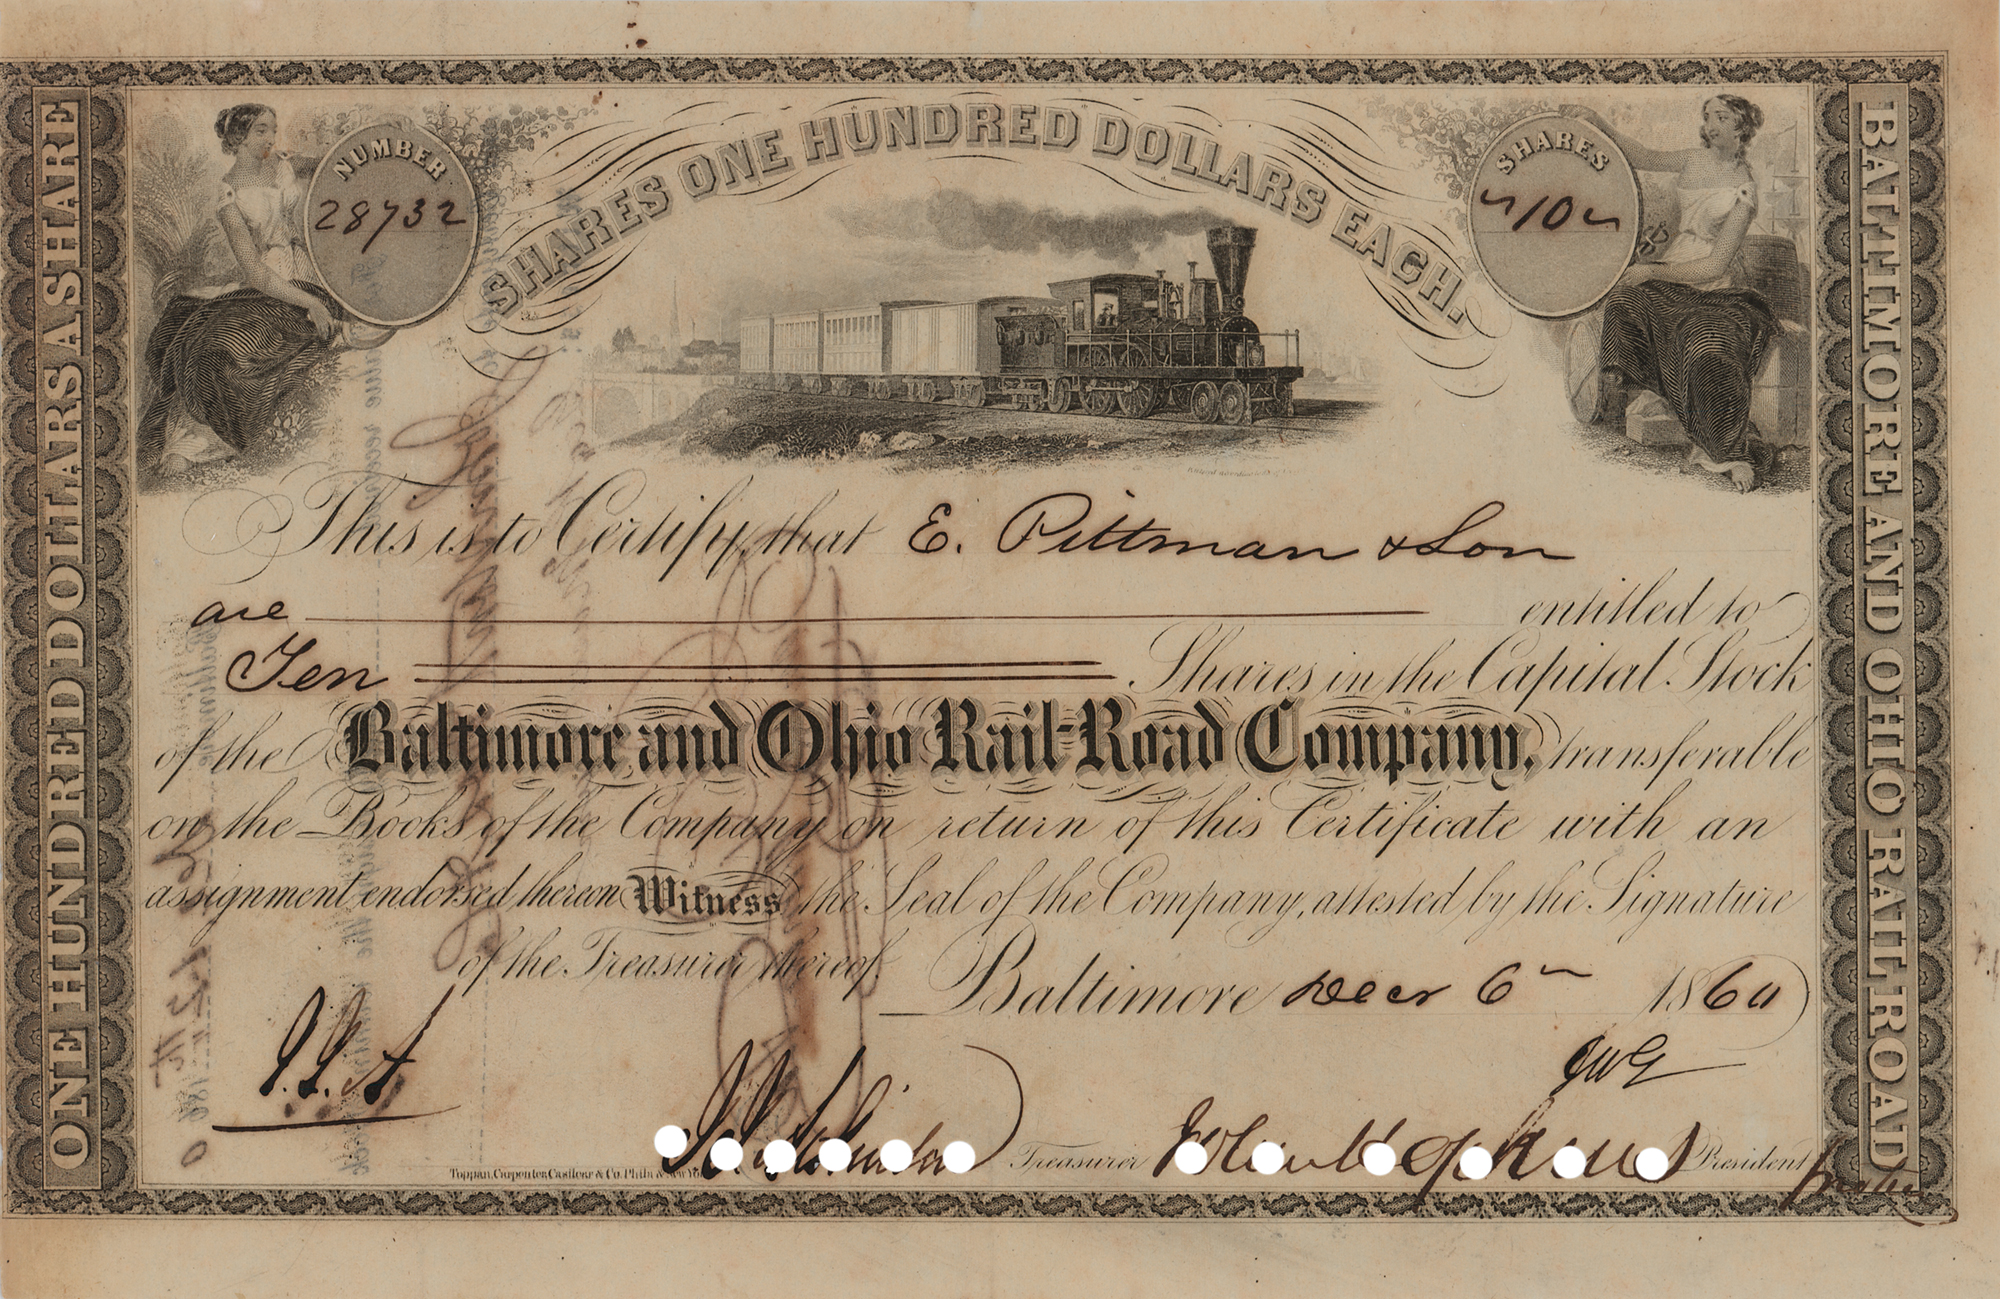 SHARES ONE HUNDRED DOLLARS EACH.
NUMBER
28732
SHARES
10
ONE HUNDRED DOLLARS A SHARE
BALTIMORE AND OHIO RAIL ROAD
This is to Certify, that E. Pittman & Son
are entitled to
Ten Shares in the Capital Stock
of the Baltimore and Ohio Rail-Road Company, transferable
on the Books of the Company on return of this Certificate with an
assignment endorsed thereon Witness the Seal of the Company, attested by the Signature
of the Treasurer thereof.
Baltimore Decr 6 1860
J. J. A
JWG
Treasurer John Hopkins President
Toppan, Carpenter, Casilear & Co. Phila & New York